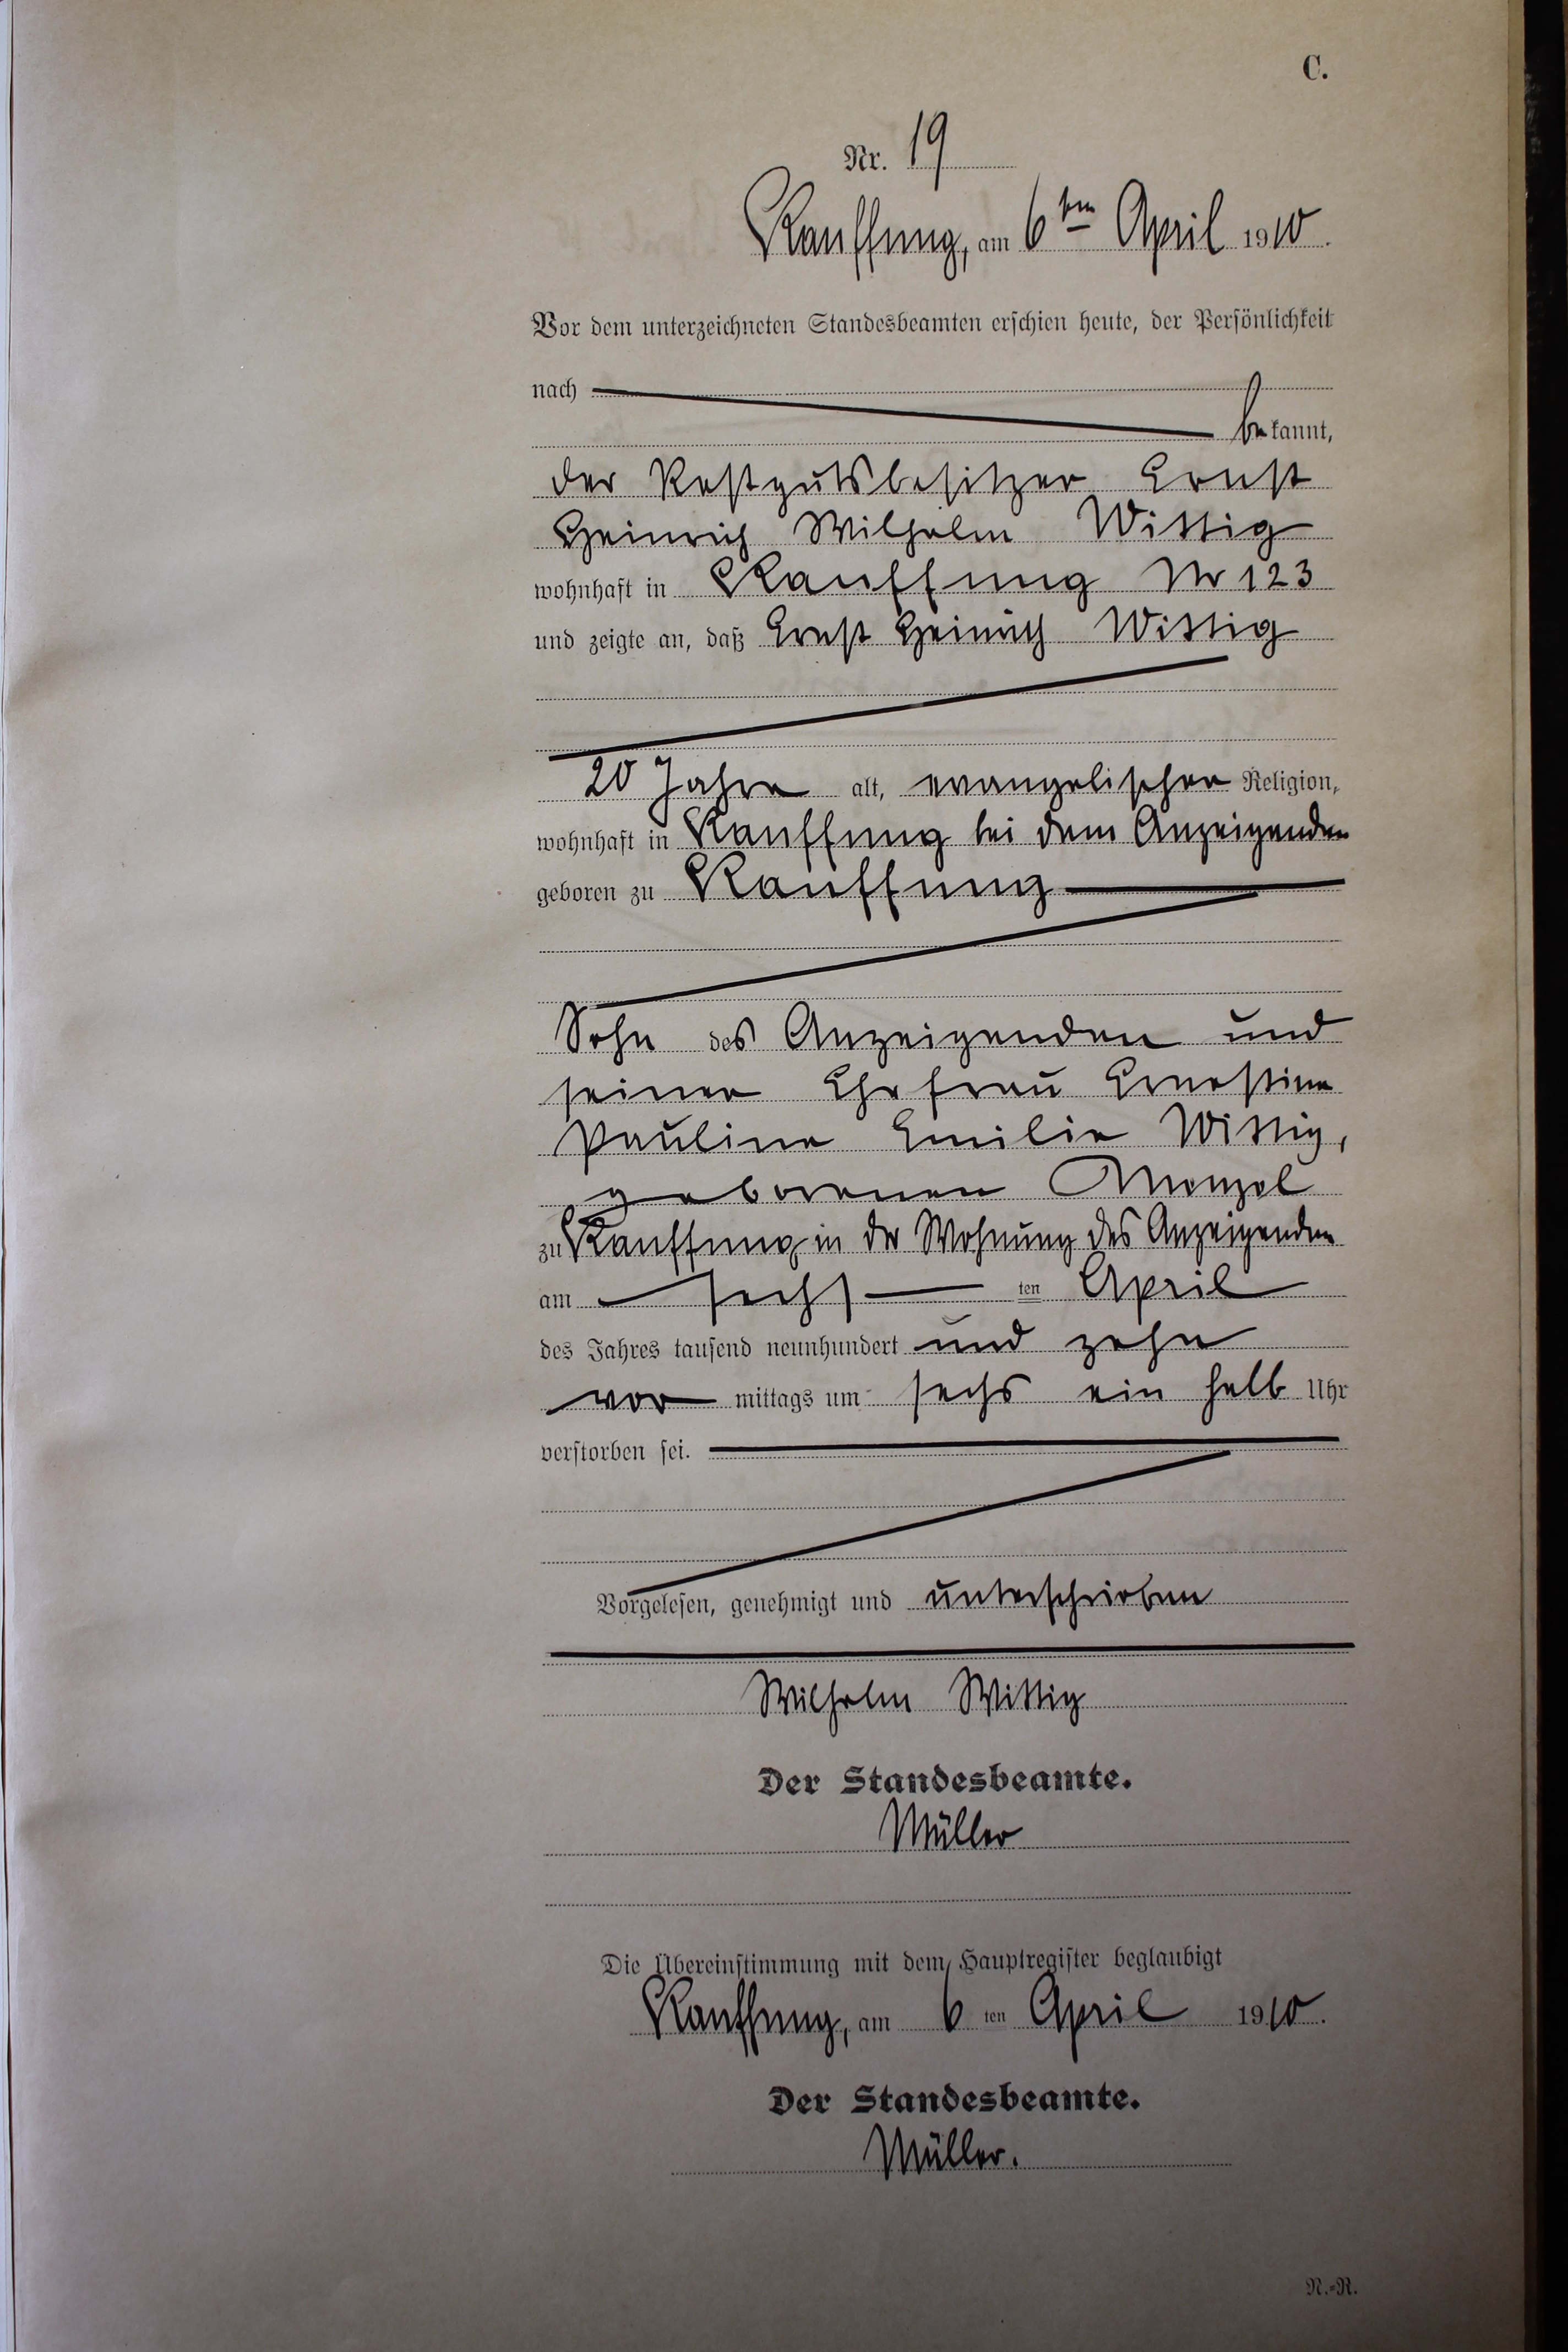 C.
Nr. 19
Kauffung, am 6ten April 1910.
Vor dem unterzeichneten Standesbeamten erschien heute, der Persönlichkeit
nach
bekannt,
der Restgutsbesitzer Ernst
Heinrich Wilhelm Wittig
wohnhaft in Kauffung Nr 123
und zeigte an, daß Ernst Heinrich Wittig
20 Jahre alt, evangelischer Religion,
wohnhaft in Kauffung bei dem Anzeigenden
geboren zu Kauffung
Sohn des Anzeigenden und
seiner Ehefrau Ernestine
Pauline Emilie Wittig,
geborenen Menzel
zu Kauffung in der Wohnung des Anzeigenden
am sechsten April
des Jahres tausend neunhundert und zehn
vormittags um sechs ein halb Uhr
verstorben sei.
Vorgelesen, genehmigt und unterschrieben
Wilhelm Wittig
Der Standesbeamte.
Müller
Die Übereinstimmung mit dem Hauptregister beglaubigt
Kauffung, am 6ten April 1910.
Der Standesbeamte.
Müller.
N.-R.